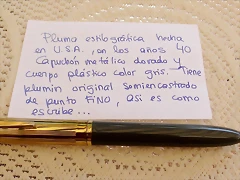 Pluma estilográfica hecha
en U.S.A., en los años 40
Capuchón metálico dorado y
cuerpo plástico color gris. Tiene
plumin original semiencastrado
de punto FINO, Así es como
escribe...